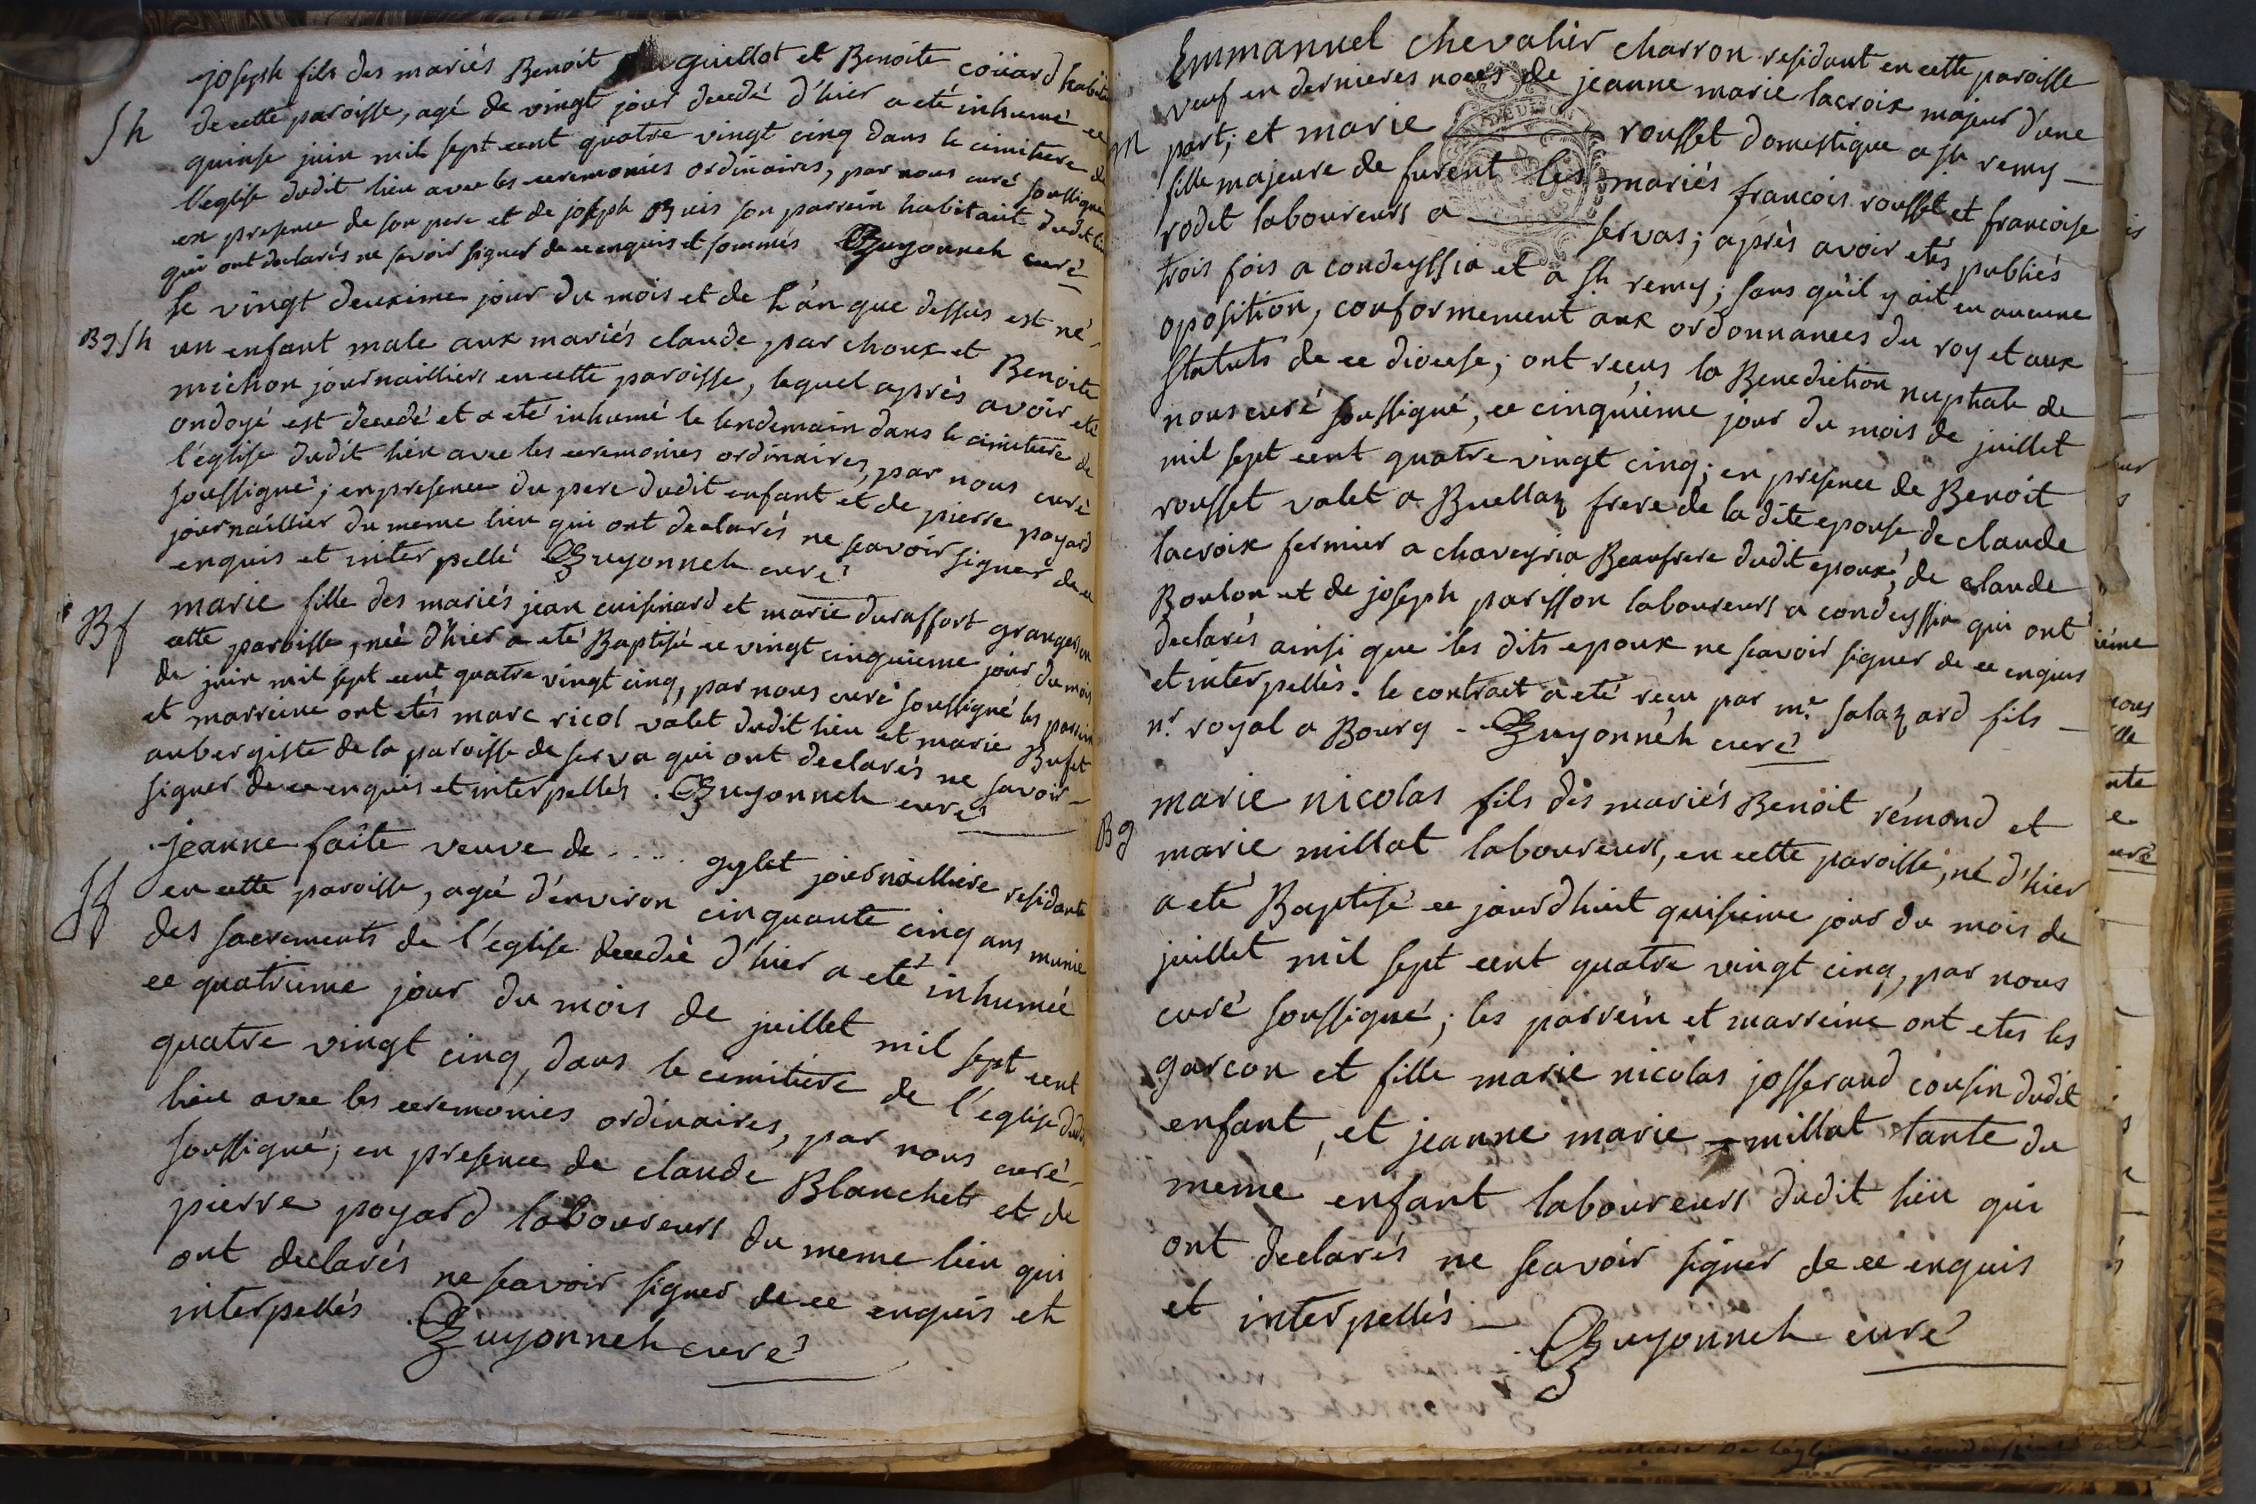 joseph fils des mariés Benoit guillot et Benoite coüard habitan
Sh
de cette paroisse, agé de vingt jour decedé d'hier a eté inhumé ce
quinse juin mil sept cent quatre vingt cinq dans le cimitiere de
l'eglise dudit lieu avec les ceremonies ordinaires, par nous curé soussigné
en presence de son pere et de joseph Buis son parrein habitant dudit lieu
qui ont declarés ne savoir signer de ce enquis et sommés Guyonneh curé
Bg Sh
le vingt deuxime jour du mois et de l'an que dessus est né
un enfant male aux mariés claude parchoux et Benoite
michon journailliers en cette paroisse, lequel après avoir eté
ondoyé est decedé et a eté inhumé le lendemain dans le cimitiere de
l'église dudit lieu avec les ceremonies ordinaires, par nous curé
soussigné; en presence du pere dudit enfant et de pierre poyard
journaillier du meme lieu qui ont declarés ne scavoir signer de ce
enquis et interpellé Guyonneh curé
Bf
marie fille des mariés jean cuisinard et marie duraffort grangers en
cette paroisse, née d'hier a eté Baptisé ce vingt cinquieme jour du mois
de juin mil sept cent quatre vingt cinq, par nous curé soussigné les parrein
et marreine ont etés marc ricol valet dudit lieu et marie Bufet
aubergiste de la paroisse de serva qui ont declarés ne savoir
signer de ce enquis et interpellés. Guyonneh curé
Sf
jeanne faite veuve de ..... gylet journailliere residante
en cette paroisse, agée d'environ cinquante cinq ans munie
des sacrements de l'eglise decedée d'hier a eté inhumée
ce quatrieme jour du mois de juillet mil sept cent
quatre vingt cinq, dans le cemitière de l'eglise dudit
lieu avec les ceremonies ordinaires, par nous curé
soussigné; en presence de claude Blanchet et de
pierre poyard laboureurs du meme lieu qui
ont declarés ne scavoir signer de ce enquis et
interpellés Guyonneh curé
Emmanuel chevalier charron residant en cette paroisse
veuf en dernieres noces de jeanne marie lacroix majeur d'une
m
part; et marie rousset domestique a st remy
fille majeure de furent les mariés francois rousset et francoise
rodet laboureurs a servas; après avoir etés publiés
trois fois a condeyssia et a st remy; sans qu'il y ait eu aucune
oposition, conformement aux ordonnances du roy et aux
statuts de ce diocese; ont reçus la Benediction nuptiale de
nous curé soussigné, ce cinquieme jour du mois de juillet
mil sept cent quatre vingt cinq; en présence de Benoit
rousset valet a Buellaz frere de la dite epouse, de claude
lacroix fermier a chaveyria Beaufrere dudit epoux, de claude
Boulon et de joseph parisson laboureurs a condeyssia qui ont
declarés ainsi que les dits epoux ne scavoir signer de ce enquis
et interpellés. le contrait a eté reçu par me salazard fils
nr. royal a Bourg - Guyonneh curé
Bg
marie nicolas fils des mariés Benoit rémond et
marie millat laboureurs, en cette paroisse, né d'hier
a eté Baptisé ce jourdhuit quisieme jour du mois de
juillet mil sept cent quatre vingt cinq, par nous
curé soussigné; les parrein et marreine ont etes les
garcon et fille marie nicolas josserand cousin dudit
enfant, et jeanne marie millat tante du
meme enfant laboureurs dudit lieu qui
ont declarés ne scavoir signer de ce enquis
et interpellés Guyonneh curé